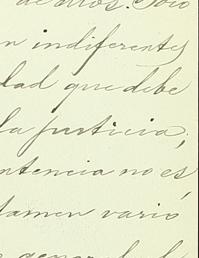 de ellos. Solo
n indiferentes
dad que debe
la justicia;
ntencia no es
tamen varió